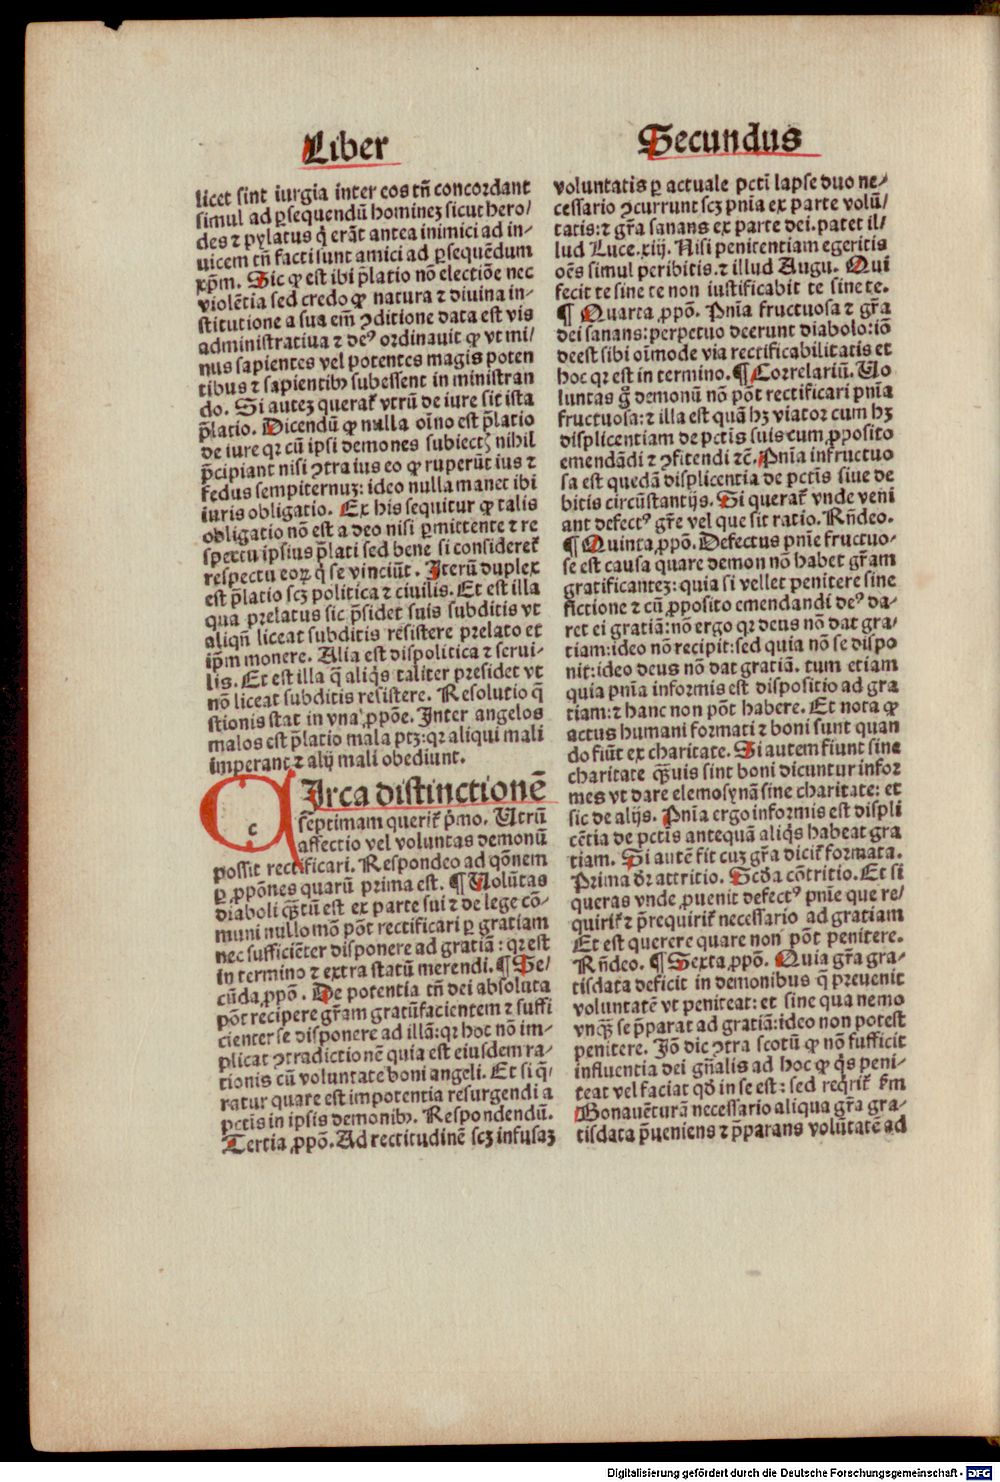 Liber
licet sint iurgia inter eos tñ concordant
simul ad ꝑsequendū hominez sicut hero/
des ⁊ pylatus q̇ erāt antea inimici ad in/
uicem tñ facti sunt amici ad ꝑsequēdum
xp̄m. Sic ꝙ est ibi p̄latio nō electiōe nec
violētia sed credo ꝙ natura ⁊ diuina in-
stitutione a sua em̄ ꝯditione data est vis
administratiua ⁊ deꝰ ordinauit ꝙ vt mi/
nus sapientes vel potentes magis poten
tibus ⁊ sapientibꝫ subessent in ministran
do. Si autez querat᷑ vtrū de iure sit ista
p̄latio. Dicendū ꝙ nulla oīno est p̄latio
de iure qꝛ cū ipsi demones subiectꝭ nihil
p̄cipiant nisi ꝯtra ius eo ꝙ ruperūt ius ⁊
fedus sempiternuz: ideo nulla manet ibi
iuris obligatio. Ex his sequitur ꝙ talis
obligatio nō est a deo nisi ꝑmittente ⁊ re
spectu ipsius p̄lati sed bene si consideret᷑
respectu eoꝝ q̇ se vinciūt. Iterū duplex
est p̄latio scꝫ politica ⁊ ciuilis. Et est illa
qua prelatus sic p̄sidet suis subditis vt
aliqñ liceat subditis resistere prelato et
ip̄m monere. Alia est dispolitica ⁊ serui-
lis. Et est illa q̄ aliq̇s taliter presidet vt
nō liceat subditis resistere. Resolutio q̄
stionis stat in vna ꝓpōe. Inter angelos
malos est p̄latio mala ptꝫ: qꝛ aliqui mali
imperant ⁊ alij mali obediunt.
c
Irca distinctionē
septimam querit᷑ p̄mo. Vtrū
affectio vel voluntas demonū
possit rectificari. Respondeo ad qōnem
ꝑ ꝓpōnes quarū prima est. ¶ Volūtas
diaboli q̄ꝫtū est ex parte sui ⁊ de lege cō-
muni nullo mō pōt rectificari ꝑ gratiam
nec sufficiēter disponere ad gratiā: qꝛ est
in termino ⁊ extra statū merendi. ¶ Se/
cūda ꝓpō. De potentia tñ dei absoluta
pōt recipere gr̄am gratūfacientem ⁊ suffi
cienter se disponere ad illā: qꝛ hoc nō im-
plicat ꝯtradictionē quia est eiusdem ra-
tionis cū voluntate boni angeli. Et si q̄/
ratur quare est impotentia resurgendi a
pctīs in ipsis demonibꝫ. Respondendū.
Tertia ꝓpō. Ad rectitudinē scꝫ infusaz
Secundus
voluntatis ꝑ actuale pctī lapse duo ne/
cessario ꝯcurrunt scꝫ pnīa ex parte volū/
tatis: ⁊ gr̄a sanans ex parte dei. patet il/
lud Luce. xiij. Nisi penitentiam egeritis
oēs simul peribitis. ⁊ illud Augu. Qui
fecit te sine te non iustificabit te sine te.
¶ Quarta ꝓpō. Pnīa fructuosa ⁊ gr̄a
dei sanans: perpetuo deerunt diabolo: iō
deest sibi oīmode via rectificabilitatis et
hoc qꝛ est in termino. ¶ Correlariū. Vo
luntas gͦ demonū nō pōt rectificari pnīa
fructuosa: ⁊ illa est quā hꝫ viator cum hꝫ
displicentiam de pctīs suis cum ꝓposito
emendādi ⁊ ꝯfitendi ⁊c̄. Pnīa infructuo
sa est quedā displicentia de pctīs siue de
bitis circūstantijs. Si querat᷑ vnde veni
ant defectꝰ gr̄e vel que sit ratio. Rñdeo.
¶ Quinta ꝓpō. Defectus pnīe fructuo-
se est causa quare demon nō habet gr̄am
gratificantez: quia si vellet penitere sine
fictione ⁊ cū ꝓposito emendandi deꝰ da-
ret ei gratiā: nō ergo qꝛ deus nō dat gra/
tiam: ideo nō recipit: sed quia nō se dispo
nit: ideo deus nō dat gratiā. tum etiam
quia pnīa informis est dispositio ad gra
tiam: ⁊ hanc non pōt habere. Et nota ꝙ
actus humani formati ⁊ boni sunt quan
do fiūt ex charitate. Si autem fiunt sine
charitate q̄ꝫuis sint boni dicuntur infor
mes vt dare elemosynā sine charitate: et
sic de alijs. Pnīa ergo informis est displi
cētia de pctīs antequā aliq̇s habeat gra
tiam. Si autē fit cuz gr̄a dicit᷑ formata.
Prima dr̄ attritio. Scd̄a cōtritio. Et si
queras vnde ꝓuenit defectꝰ pnīe que re/
quirit᷑ ⁊ p̄requirit᷑ necessario ad gratiam
Et est querere quare non pōt penitere.
Rñdeo. ¶ Sexta ꝓpō. Quia gr̄a gra-
tisdata deficit in demonibus q̄ preuenit
voluntatē vt peniteat: et sine qua nemo
vnq̄ꝫ se p̄parat ad gratiā: ideo non potest
penitere. Iō dic ꝯtra scotū ꝙ nō sufficit
influentia dei gñalis ad hoc ꝙ q̇s peni-
teat vel faciat qd̄ in se est: sed reqrit᷑ fm
Bonauēturā necessario aliqua gr̄a gra-
tisdata p̄ueniens ⁊ p̄parans volūtatē ad
Digitalisierung gefördert durch die Deutsche Forschungsgemeinschaft - DFG